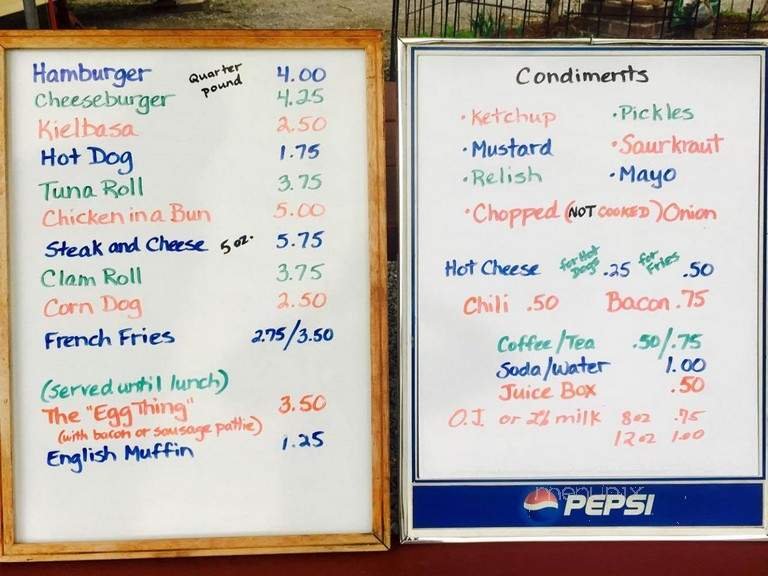 Hamburger Quarter pound 4.00
Cheeseburger 4.25
Kielbasa 2.50
Hot Dog 1.75
Tuna Roll 3.75
Chicken in a Bun 5.00
Steak and Cheese 5 oz. 5.75
Clam Roll 3.75
Corn Dog 2.50
French Fries 2.75/3.50
(served until lunch)
The "Egg Thing" 3.50
(with bacon or sausage pattie)
English Muffin 1.25
Condiments
• Ketchup • Pickles
• Mustard • Saurkraut
• Relish • Mayo
• Chopped (NOT COOKED) Onion
Hot Cheese for Hot Dogs .25 for Fries .50
Chili .50 Bacon .75
Coffee/Tea .50/.75
Soda/Water 1.00
Juice Box .50
O.J. or 2% milk 8oz .75
12oz 1.00
menupix
PEPSI